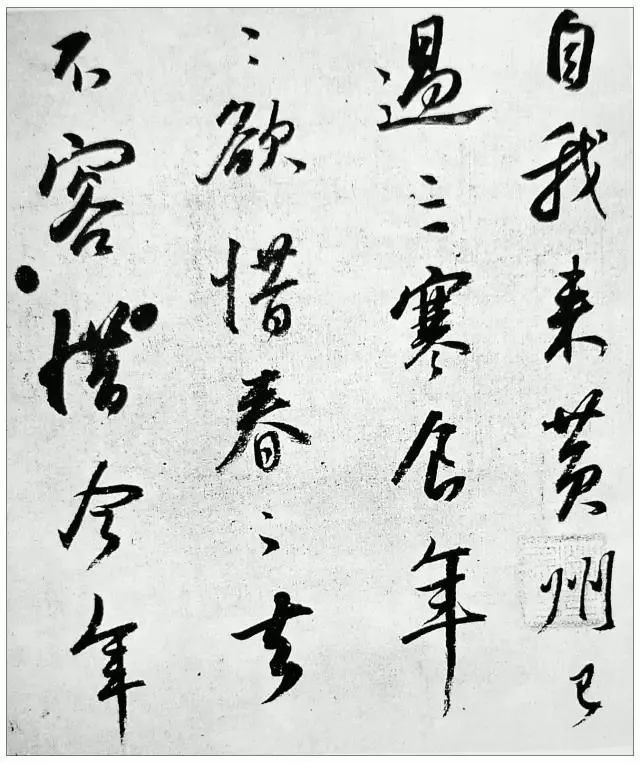 自我來黃州已
過三寒食年
〻欲惜春〻去
不容惜今年